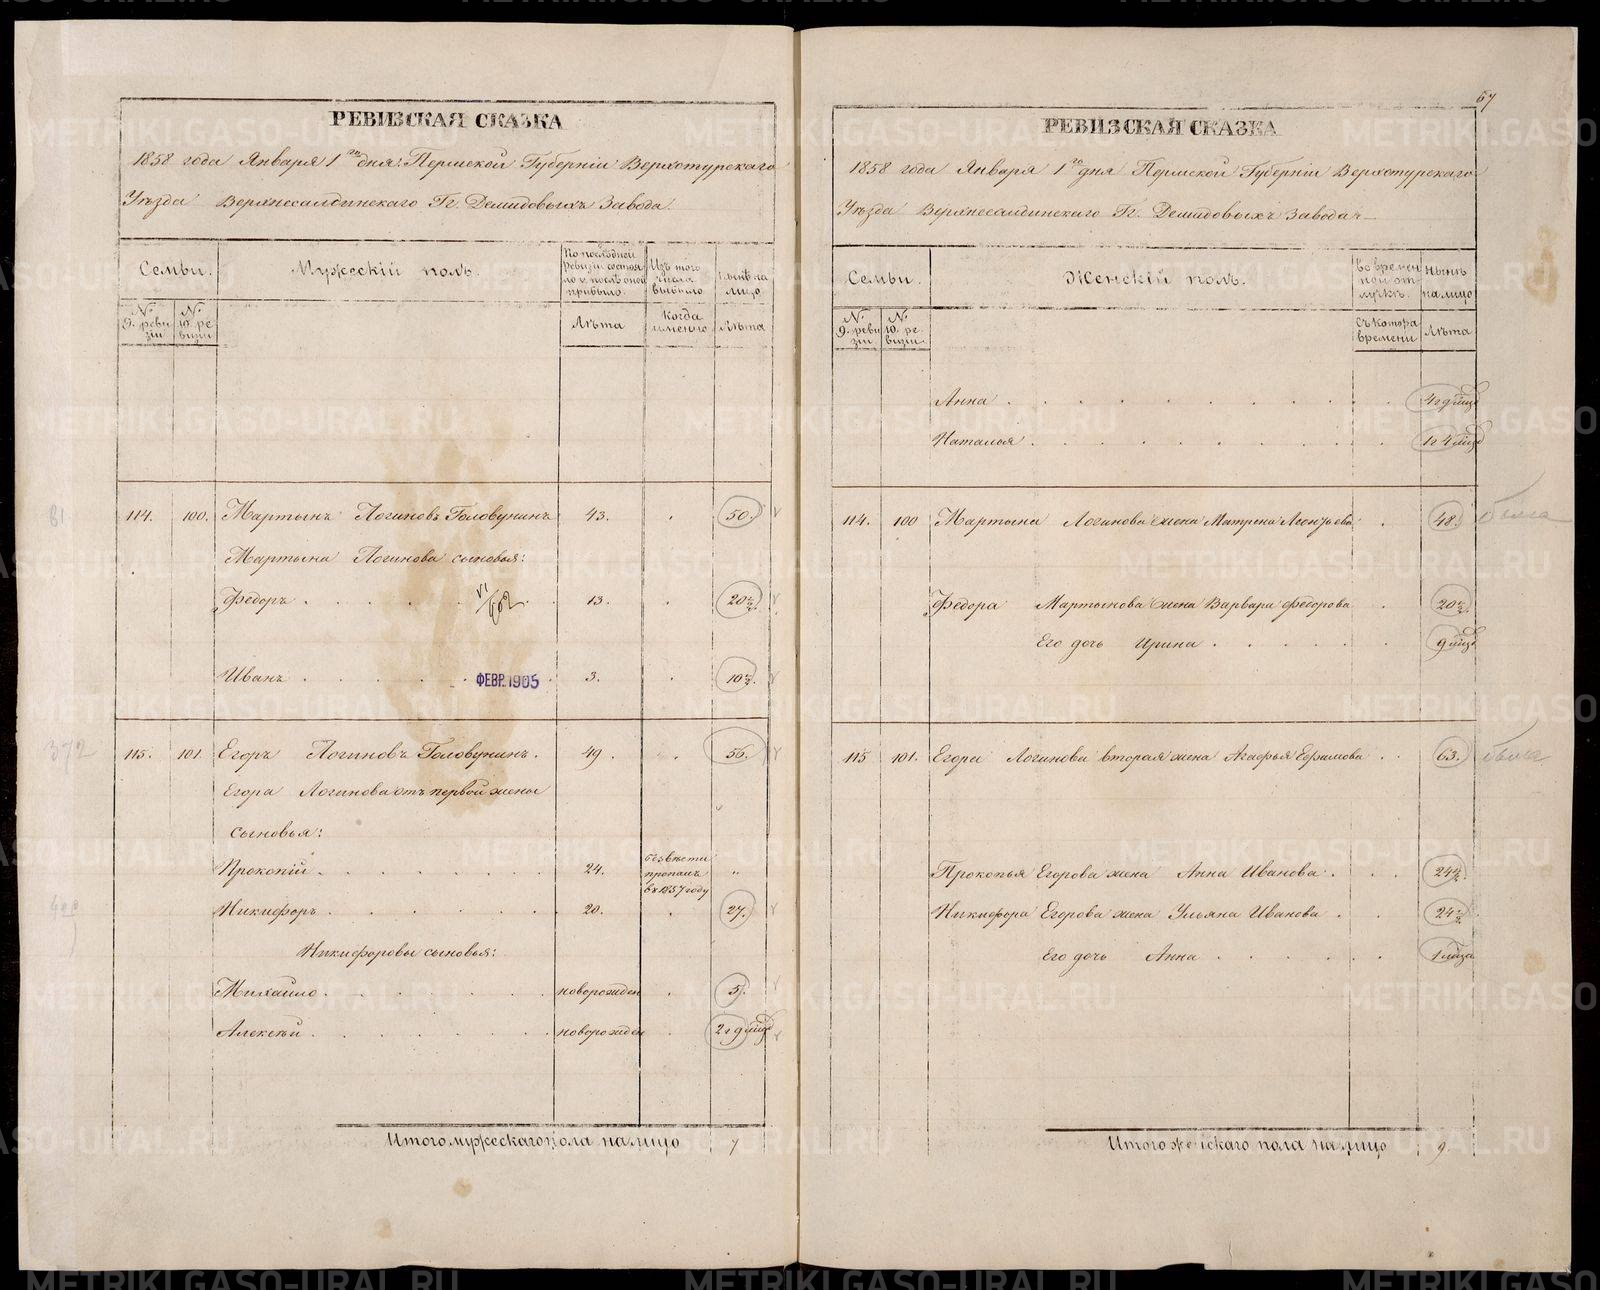 РЕВИЗСКАЯ СКАЗКА
1858 года Января 1го дня: Пермской Губернiи Верхотурскаго
Уѣзда Верхнесалдинскаго Гг. Демидовыхъ Завода.
Семьи.
Мужескiй полъ.
По послѣдней ревизiи состояло и послѣ оной прибыло.
Изъ того числа выбыло
Нынѣ на лицо
№ 9. ревизiи
№ 10. ревизiи
Лѣта
Когда именно
Лѣта
114. 100. Мартынъ Логиновъ Головунинъ 43. 50.
Мартына Логинова сыновья:
Федоръ 13. 20½
Иванъ ФЕВР. 1905 3. 10½
115. 101 Егоръ Логиновъ Головунинъ. 49. 56.
Егора Логинова отъ первой жены
сыновья:
Прокопiй 24. безвѣсти пропалъ въ 1857 году
Никифоръ 20. 27.
Никифоровы сыновья:
Михайло новорожден 5.
Алексѣй новорожден 2 г 9 мѣс
Итого мужескаго пола на лицо 7
67
РЕВИЗСКАЯ СКАЗКА
1858 года Января 1го дня Пермской Губернiи Верхотурскаго
Уѣзда Верхнесалдинскаго Гг. Демидовыхъ Завода
Семьи.
Женскiй полъ.
Во временной отлучкѣ.
Нынѣ на лицо
№ 9. ревизiи
№ 10. ревизiи
Съ котора времени
Лѣта
Анна 4 г 9 мѣс
Наталья 1 г 4 мѣс
114. 100 Мартына Логинова жена Матрена Леонтьева 48.
Федора Мартынова жена Варвара Федорова 20½
Его дочь Ирина 9 мѣс
115 101. Егора Логинова вторая жена Агафья Ефимова 63.
Прокопья Егорова жена Анна Иванова 24½
Никифора Егорова жена Ульяна Иванова 24½
Его дочь Анна 1 мѣс
Итого женскаго пола на лицо 9.
METRIKI.GASO-URAL.RU